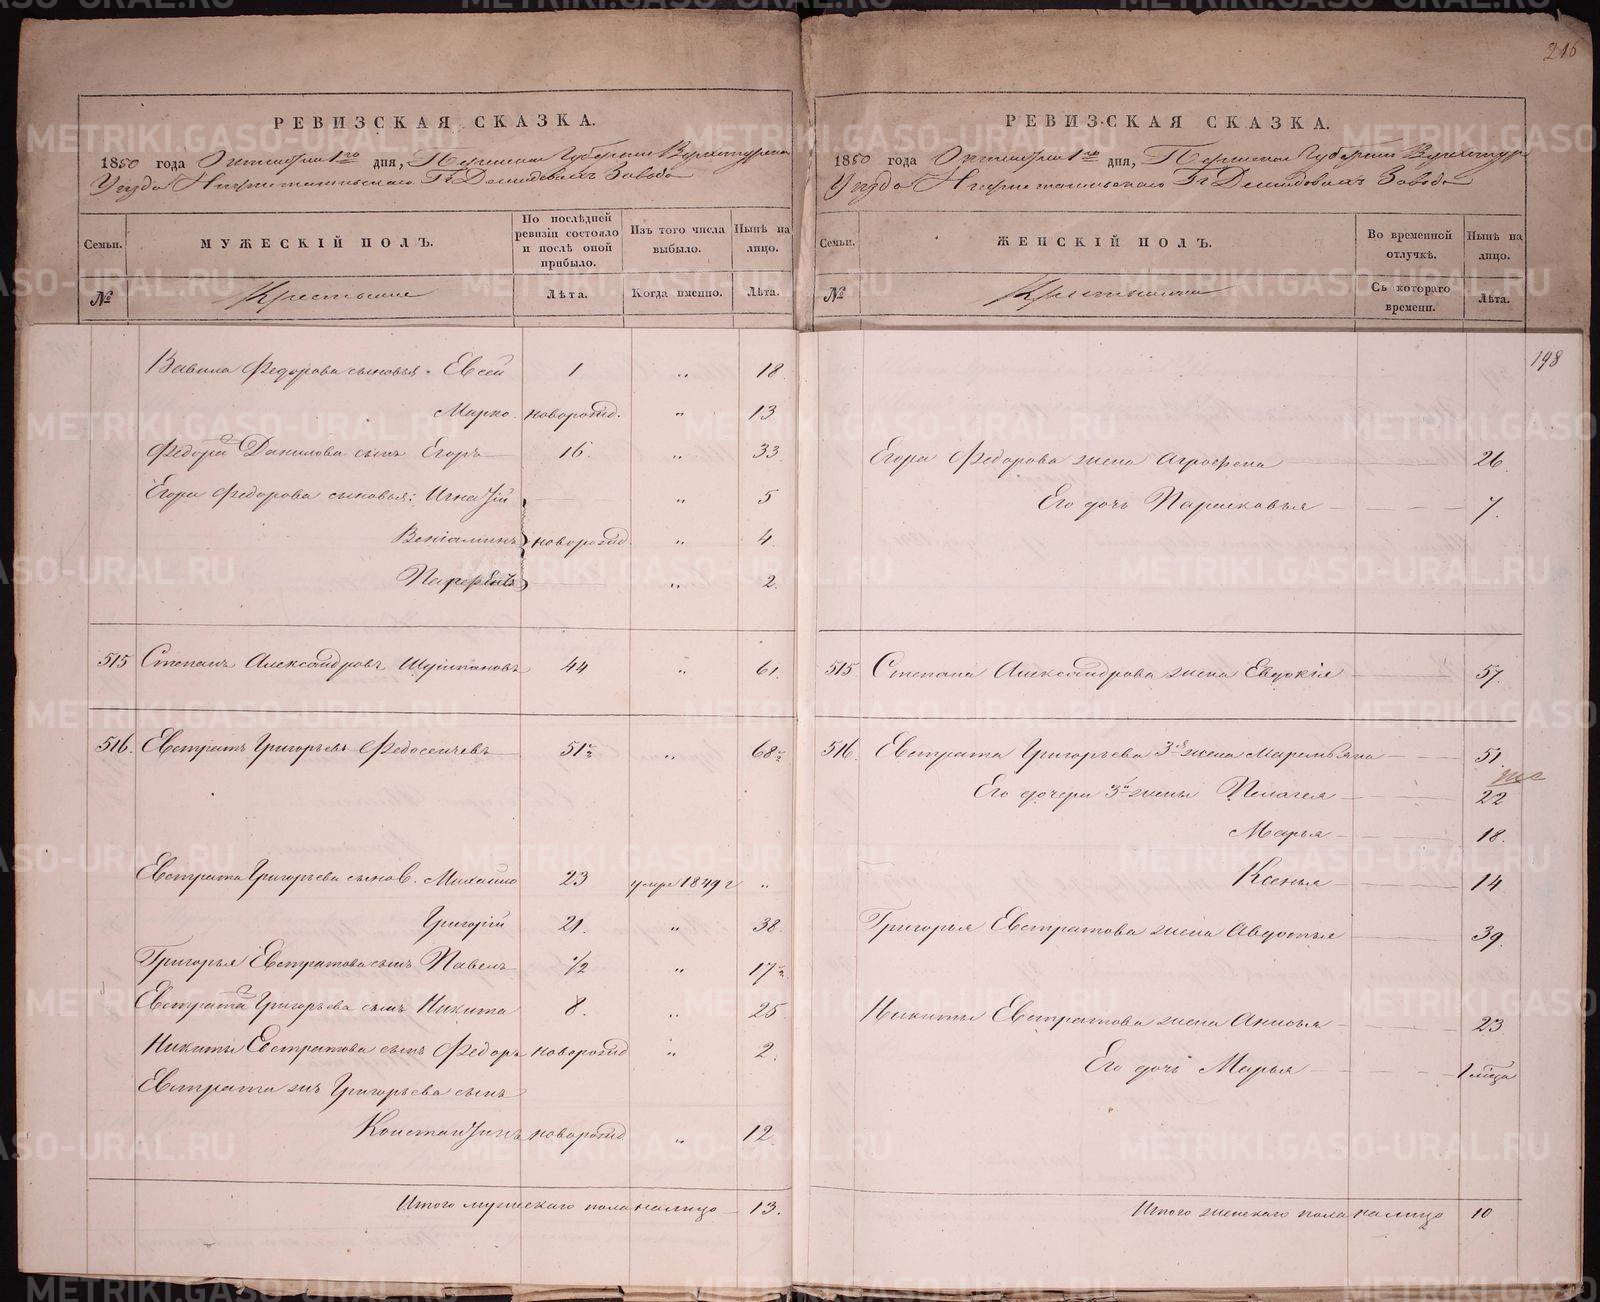 216
РЕВИЗСКАЯ СКАЗКА.
1850 года Октября 1го дня, Пермской Губернии Верхотурскаго
Уезда Нижнетагильскаго Гг. Демидовыхъ Завода
Семьи. МУЖЕСКІЙ ПОЛЪ. По послѣдней ревизіи состояло и послѣ оной прибыло. Изъ того числа выбыло. Нынѣ на лицо.
№ Крестьяне Лѣта. Когда именно. Лѣта.
Вавила Федорова сыновья. Евсей 1 " 18.
Марко. новорожд. " 13
Федора Данилова сынъ Егоръ 16. " 33
Егора Федорова сыновья: Игнатій " 5
Веніаминъ новорожд. " 4.
" 2.
515 Степанъ Александровъ 44 " 61.
516. Евстратъ Григорьевъ Федосеичевъ 51½ " 68½
Евстрата Григорьева сынов. Михайло 23 умре 1849 г "
Григорій 21. " 38.
Григорья Евстратова сынъ Павелъ ½ " 17½
Евстрата Григорьева сынъ Никита 8. " 25.
Никиты Евстратова сынъ Федоръ новорожд " 2.
Евстрата жъ Григорьева сынъ
Константинъ новорожд " 12.
Итого мужескаго пола налицо 13.
РЕВИЗСКАЯ СКАЗКА.
1850 года Октября 1го дня, Пермской Губернии Верхотур
Уезда Нижнетагильскаго Гг. Демидовыхъ Завода
Семьи. ЖЕНСКІЙ ПОЛЪ. Во временной отлучкѣ. Нынѣ на лицо.
№ Крестьянки Съ котораго времени. Лѣта.
198
Егора Федорова жена Агрофена 26.
Его дочь Парасковья 7.
515. Степана Александрова жена Евдокія 57.
516. Евстрата Григорьева 3я жена Маремьяна 51.
Его дочери 3й жены Пелагея 22
Марья 18.
Ксенья 14
Григорья Евстратова жена Авдотья 39.
Никиты Евстратова жена Анисья 23
Его дочь Марья 1 мѣсца
Итого женскаго пола налицо 10
METRIKI.GASO-URAL.RU